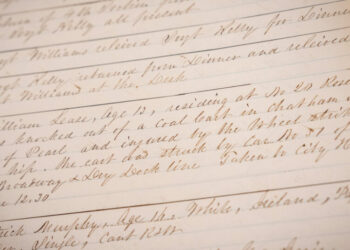 of 4th Section
Sergt Kelly all present
Sergt Williams relieved Sergt Kelly for Dinner
Sergt Kelly returned from Dinner and relieved
Sergt Williams at the Desk
William Lease, Age 13, residing at No 24 Rose
was knocked out of a Coal Cart in Chatham
of Pearl and injured by the Wheel
hip. The cart was struck by Car No 51 of
Broadway & Dry Dock line Taken to City
12.30
Murphy, Age 40, White, Ireland,
Single, Cant R&W